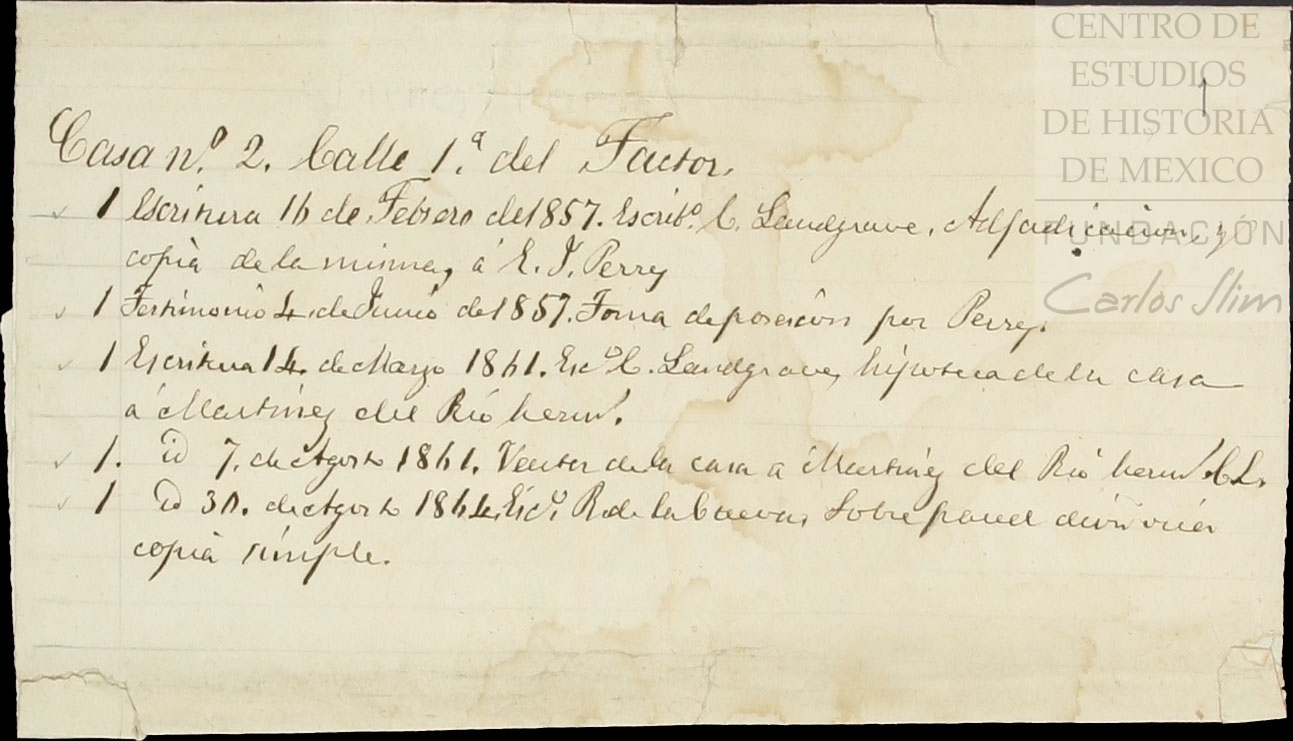 CENTRO DE
ESTUDIOS
DE HISTORIA
DE MEXICO
FUNDACIÓN
Carlos Slim
1
Casa nº. 2. Calle 1.ª del Factor.
1 Escritura 16 de Febrero de 1857. Escribº. C. Landgrave, Adjudicacion, y
copia de la misma, á E. J. Perry
1 Testimonio 4. de Junio de 1857. Toma de posecion por Perry.
1 Escritura 14. de Marzo 1861. Escº C. Landgrave, hipoteca de la casa
á Martinez del Rio herms.
1. id 7. de Agosto 1861. Venta de la casa a Martinez del Rio herms. C L.
1 id 30. de Agosto 1864. Escº. R. de la Cueva, Sobre pared divisoria
copia simple.